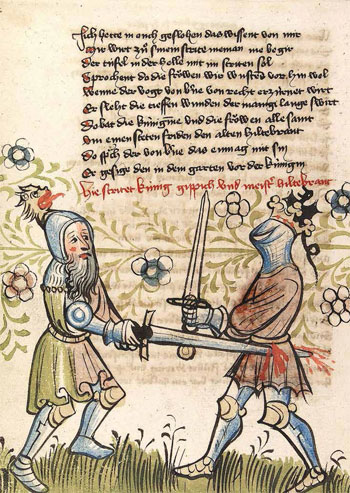 Sich hette in ouch geslohen das wissent von mir
wirt zů sime strite nieman me begir
Der tüfel in der holle mit im striten sol
Sprochent do die frowen wir wustent vor hin wol
Wenne der voge von b'ne von recht erzürnet wirt
Er sleht die tieffen wunden der mange lange swirt
Do bat die künigine und die frowen alle sant
Um einen steten friden den alten hiltebrant
Do sp'ch der von b'ne das en mag mit sin
Er gesige den in dem garten vor der künigin
Hie stritet künig gippich und meist' hiltebrant